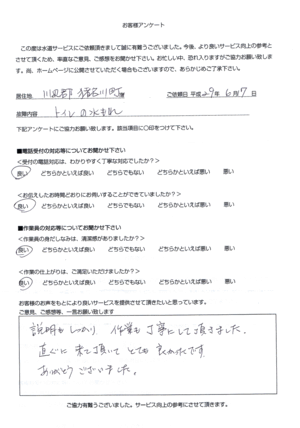 お客様アンケート
この度は水道サービスにご依頼頂きまして誠に有難うございました。今後、より良いサービス向上の参考と
させて頂くため、率直なご意見、ご感想をお聞かせ下さい。お忙しい中、恐れ入りますがご協力お願い致し
ます。尚、ホームページに公開させていただく場合もございますので、あらかじめご了承下さい。
居住地 川辺郡猪名川町 様 ご依頼日 平成29年6月17日
故障内容 トイレの水もれ
下記アンケートにご協力お願い致します。該当項目に〇印をつけて下さい。
■電話受付の対応等についてお聞かせ下さい
<受付の電話対応は、わかりやすく丁寧な対応でしたか?>
良い どちらかといえば良い どちらでもない どちらかといえば悪い 悪い
<お伝えしたお時間どおりにお伺いすることができていましたか?>
良い どちらかといえば良い どちらでもない どちらかといえば悪い 悪い
■作業員の対応等についてお聞かせ下さい
<作業員の身だしなみは、清潔感がありましたか?>
良い どちらかといえば良い どちらでもない どちらかといえば悪い 悪い
<作業の仕上がりは、ご満足いただけましたか?>
良い どちらかといえば良い どちらでもない どちらかといえば悪い 悪い
お客様の声をもとにより良いサービスを提供させて頂きたいと思っています。
ご意見、ご感想等、一言お願い致します
説明もしっかり 作業も丁寧にして頂きました。
直ぐに来て頂いて とても良かったです
ありがとうございました。
ご協力有難うございました。サービス向上の参考にさせて頂きます。